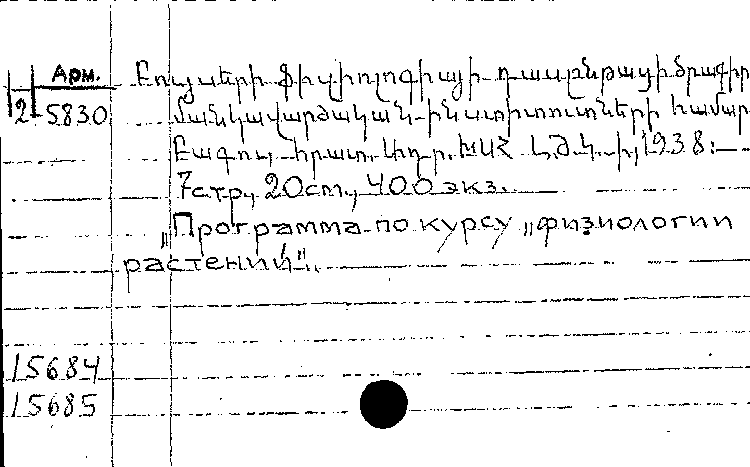 Арм.
2-5830
Բույսերի ֆիզիոլոգիայի դասընթացի ծրագիր
մանկավարժական ինստիտուտների համար
Բագու, հրատ.
ԽՍՀ 1938:
7 стр., 20 cm., 400 экз.
„Программа по курсу „физиологии
растений".
15684
15685